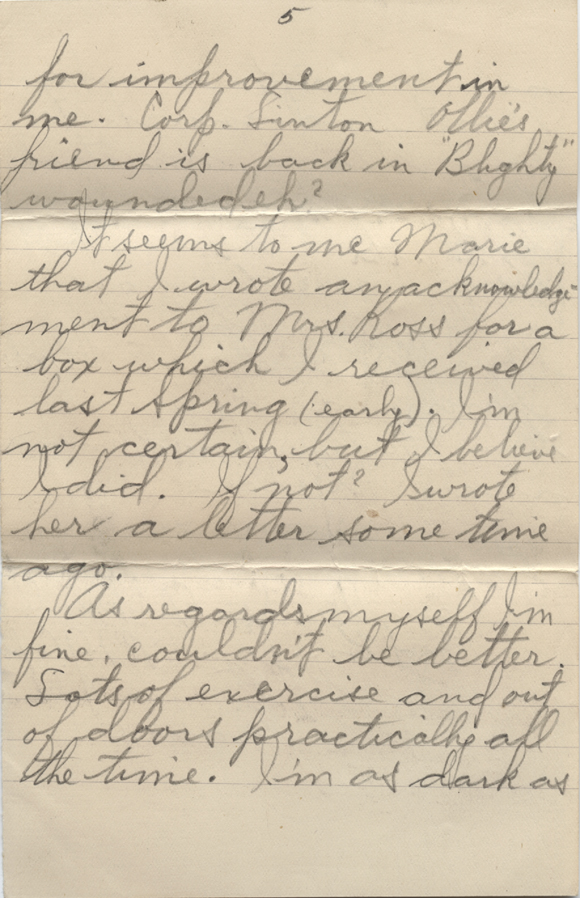 5
for improvement in
me. Corp. Sinton Ollie's
friend is back in "Blighty"
wounded eh?
It seems to me Marie
that I wrote an acknowledge-
ment to Mrs. Ross for a
box which I received
last Spring (early). I'm
not certain, but I believe
I did. If not? I wrote
her a letter some time
ago.
As regards myself I'm
fine, couldn't be better.
Lots of exercise and out
of doors practically all
the time. I'm as dark as